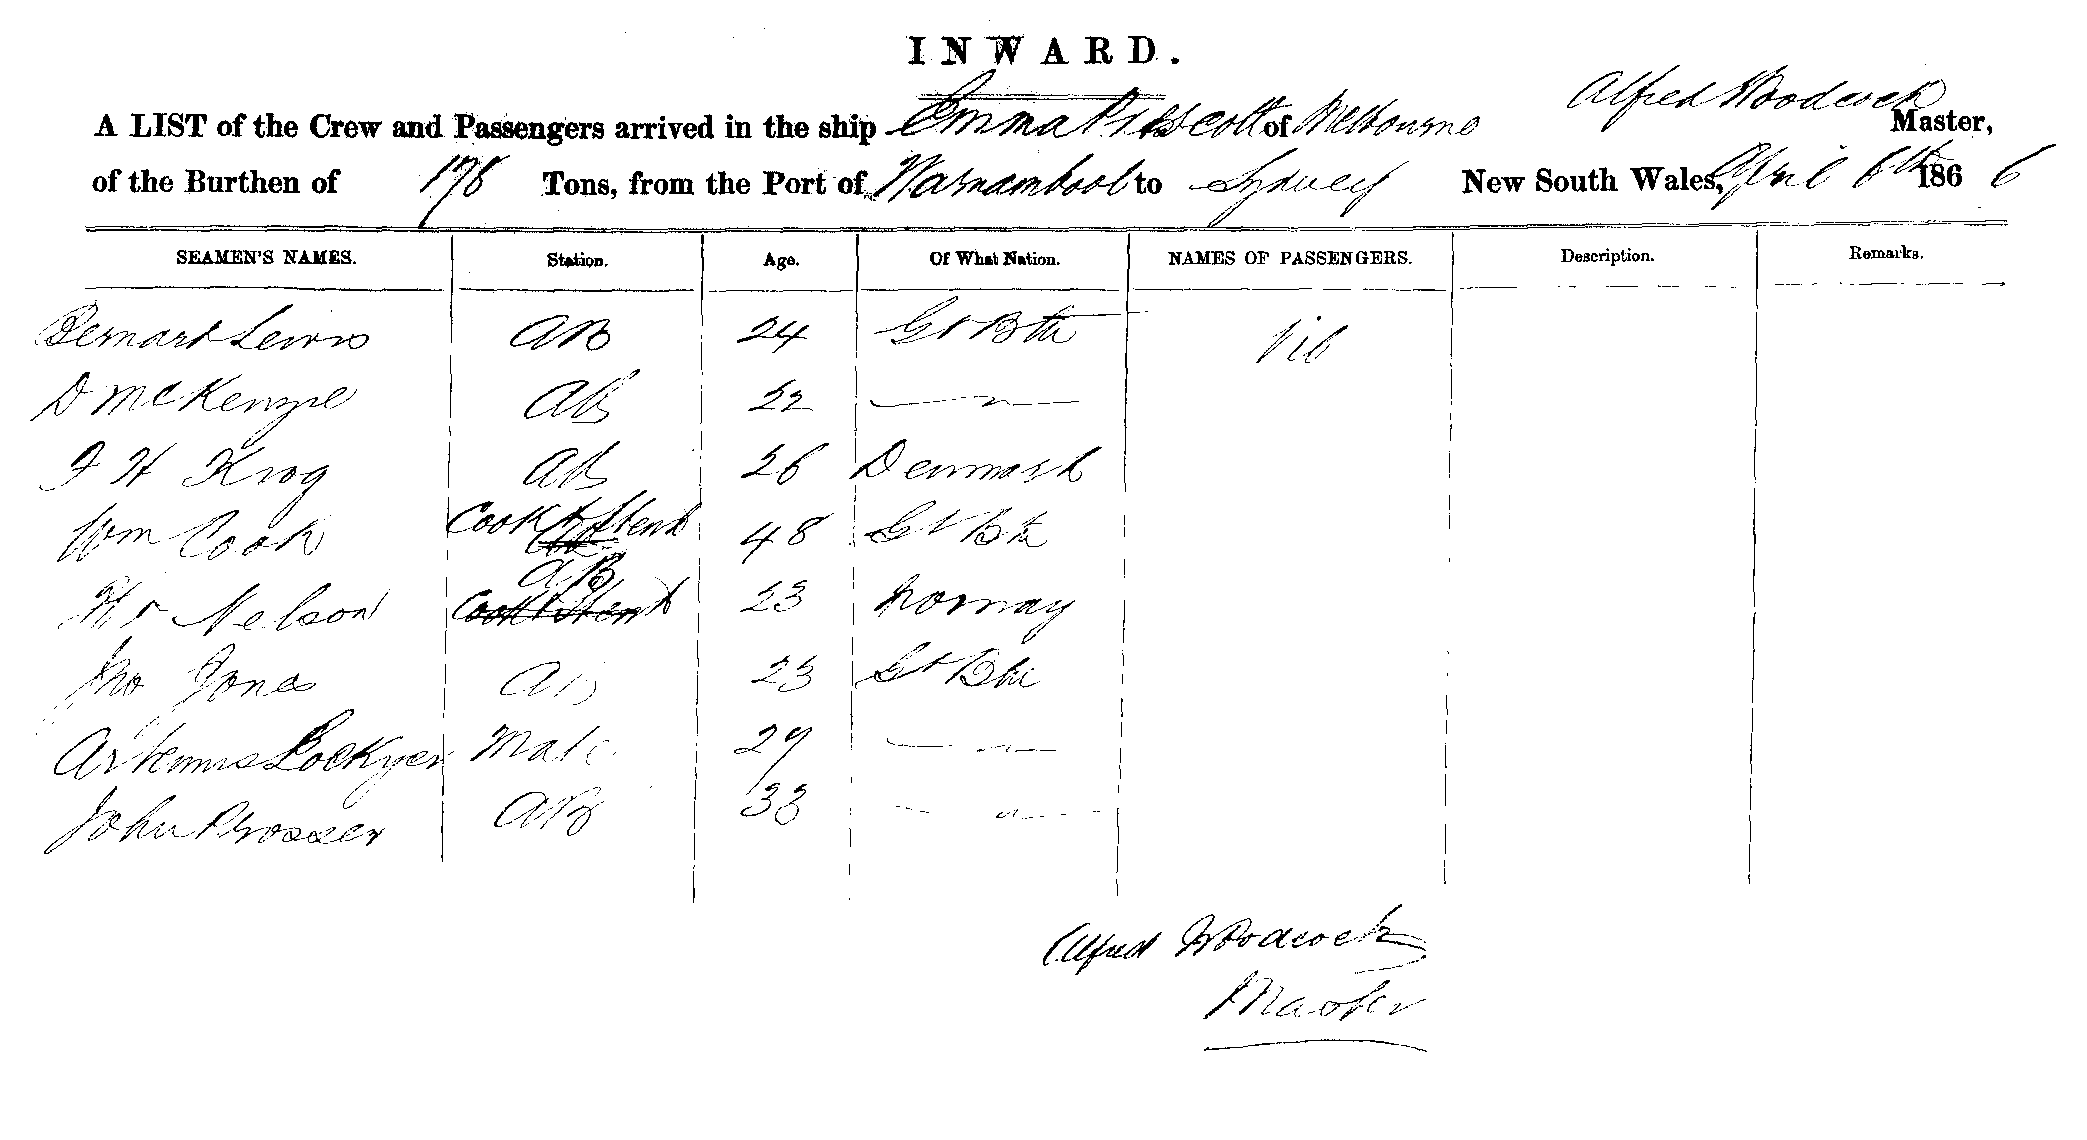 INWARD.
A LIST of the Crew and Passengers arrived in the ship Emma Prescott of Melbourne Alfred Woodcock Master,
of the Burthen of 178 Tons, from the Port of Warnambool to Sydney New South Wales, April 6th 1866
SEAMEN'S NAMES. Station. Age. Of What Nation. NAMES OF PASSENGERS. Description. Remarks.
Bernard Lewis AB 24 Gt Btn Nil
D McKenzie AB 22 — " —
F H Krog AB 26 Denmark
Wm Cook Cook & Stewd 48 Gt Btn
Nelson AB 23 Norway
Jno Jones AB 23 Gt Btn
Artemus Lockyer Mate 29 — " —
John Prosser AB 33 — " —
Alfred Woodcock
Master